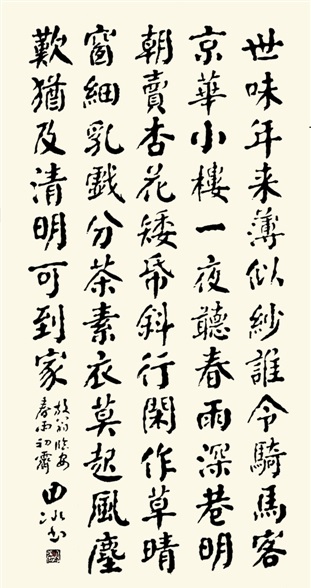 世味年来薄似紗誰令騎馬客
京華小樓一夜聽春雨深巷明
朝賣杏花矮帋斜行閑作草晴
窗細乳戲分茶素衣莫起風塵
歎猶及清明可到家
放翁臨安
春雨初霽
田冰书